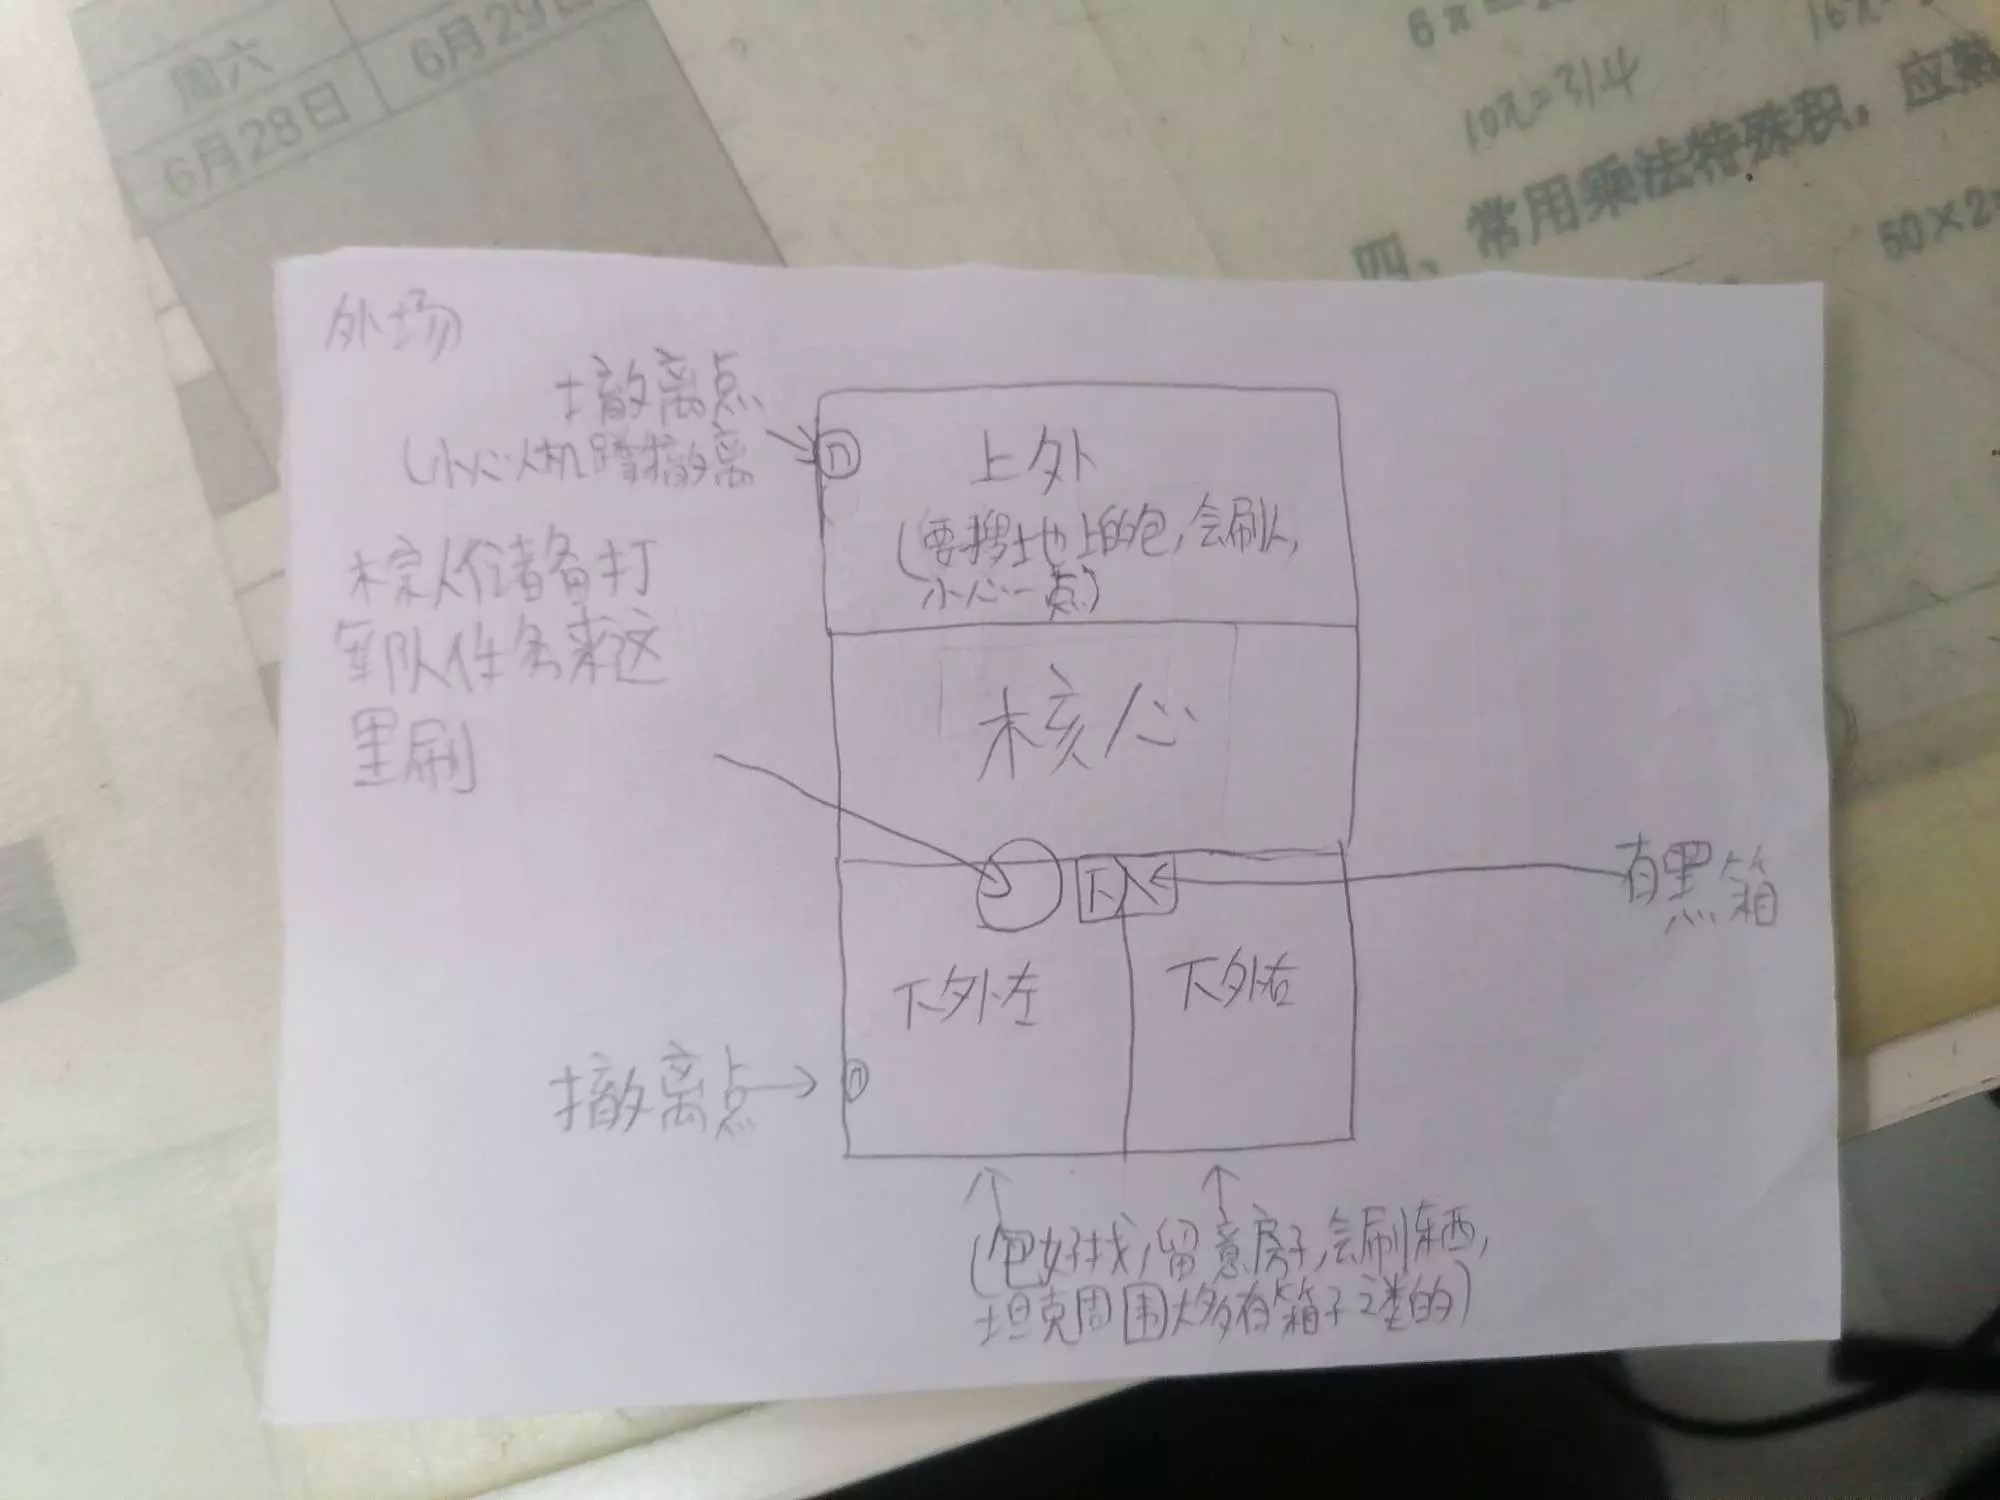 周六
6月28日
6月29日
6π=
16π=
10π=31.4
四、常用乘法特殊积,应熟
50×2=
外场
撤离点
(小心人机蹲撤离
上外
(要搜地上的包,会刷人,
小心一点)
棕人储备打
军队任务来这
里刷
核心
有黑箱
下
下外左
下外右
撤离点
(包好找,留意房子,会刷东西,
坦克周围大多有箱子之类的)